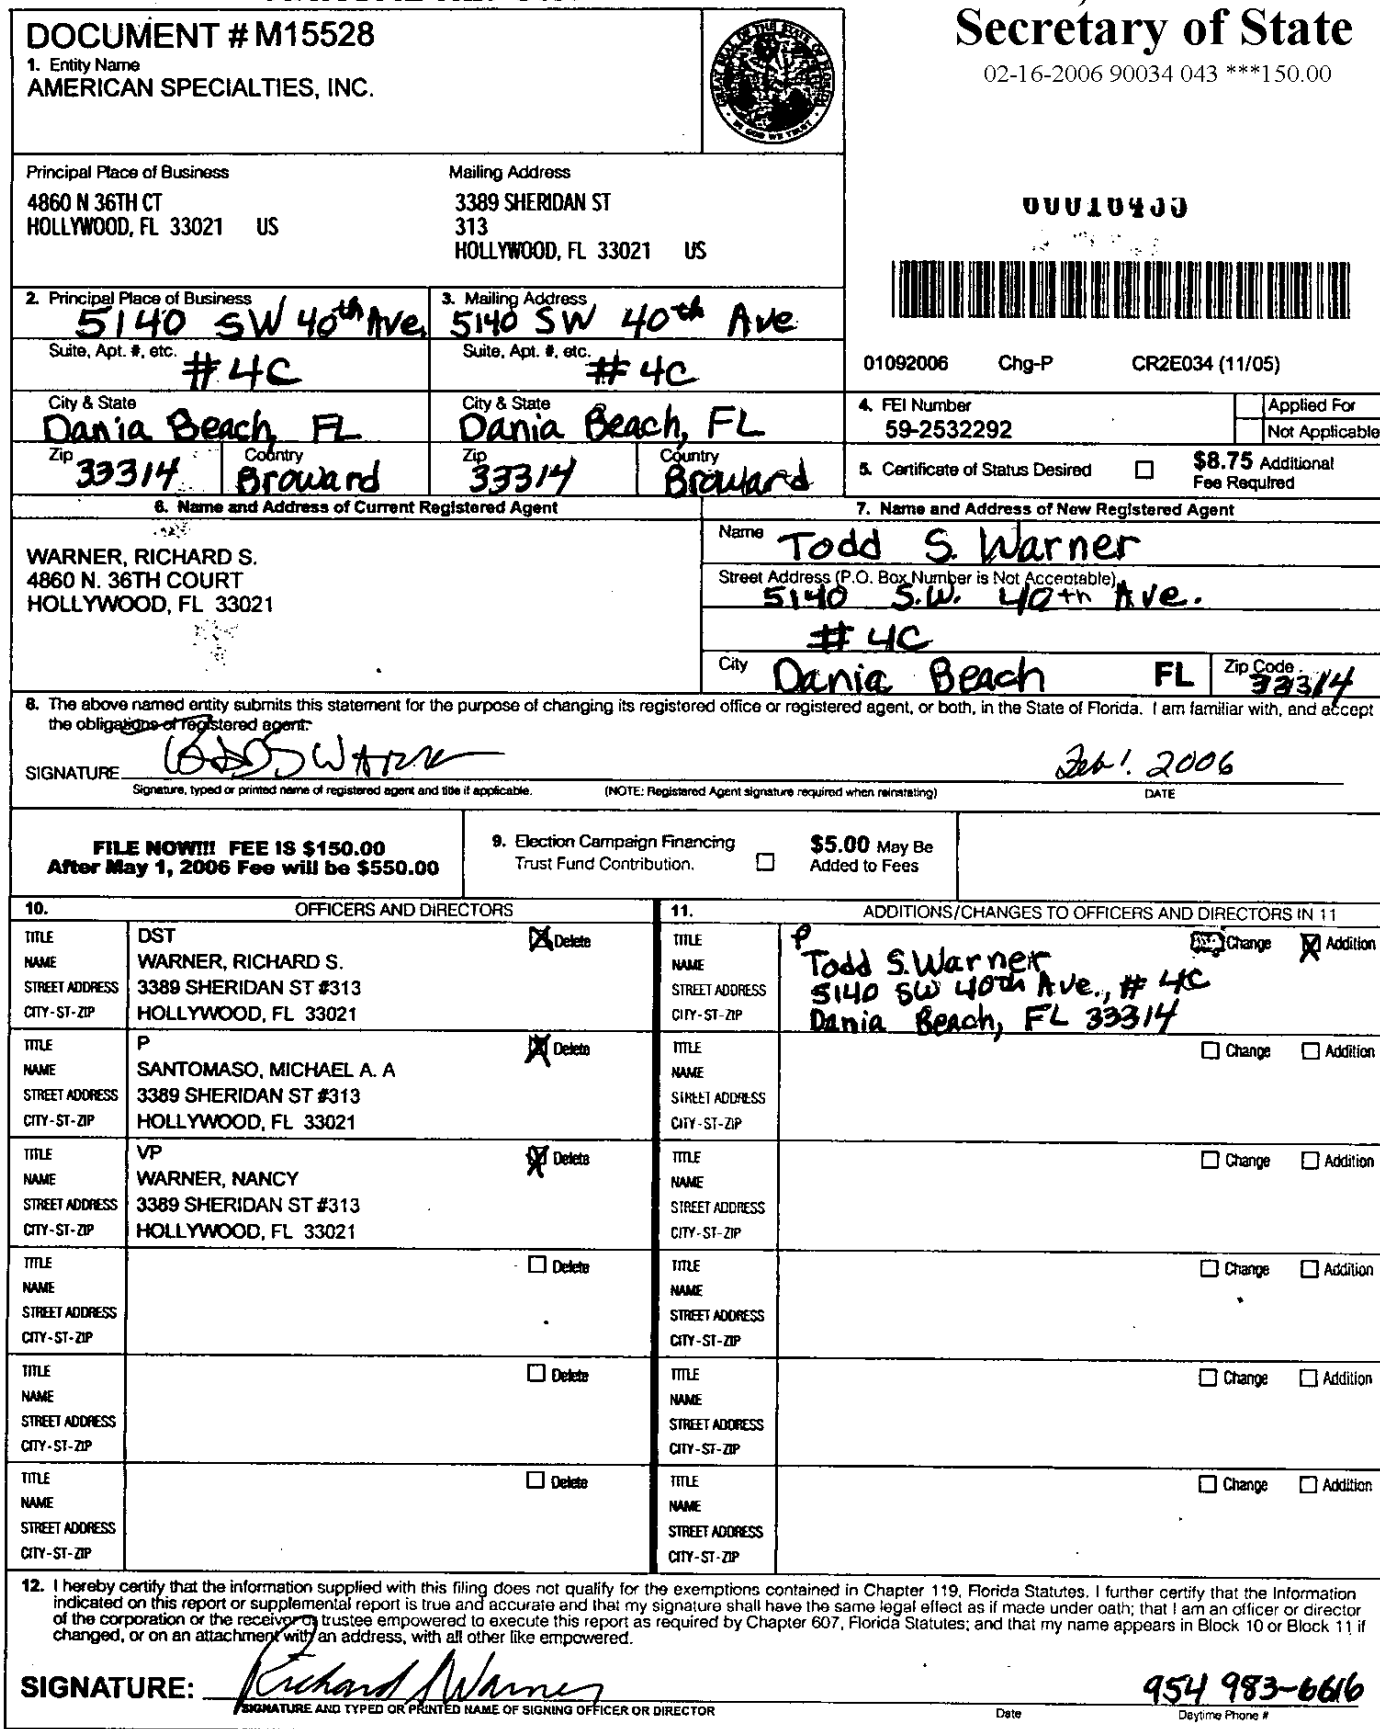 Secretary of State
02-16-2006 90034 043 ***150.00
DOCUMENT # M15528
1. Entity Name
AMERICAN SPECIALTIES, INC.
Principal Place of Business
4860 N 36TH CT
HOLLYWOOD, FL 33021 US
Mailing Address
3389 SHERIDAN ST
313
HOLLYWOOD, FL 33021 US
2. Principal Place of Business
5140 SW 40th Ave.
Suite, Apt. #, etc.
# 4C
City & State
Dania Beach, FL
Zip
33314
Country
Broward
3. Mailing Address
5140 SW 40th Ave
Suite, Apt. #, etc.
# 4C
City & State
Dania Beach, FL
Zip
33314
Country
Broward
01092006 Chg-P CR2E034 (11/05)
4. FEI Number
59-2532292
Applied For
Not Applicable
5. Certificate of Status Desired
$8.75 Additional
Fee Required
6. Name and Address of Current Registered Agent
WARNER, RICHARD S.
4860 N. 36TH COURT
HOLLYWOOD, FL 33021
7. Name and Address of New Registered Agent
Name Todd S. Warner
Street Address (P.O. Box Number is Not Acceptable)
5140 S.W. 40th Ave.
# 4C
City Dania Beach FL Zip Code 33314
8. The above named entity submits this statement for the purpose of changing its registered office or registered agent, or both, in the State of Florida. I am familiar with, and accept
the obligations of registered agent.
SIGNATURE Feb 1. 2006
Signature, typed or printed name of registered agent and title if applicable. (NOTE: Registered Agent signature required when reinstating) DATE
FILE NOW!!! FEE IS $150.00
After May 1, 2006 Fee will be $550.00
9. Election Campaign Financing
Trust Fund Contribution.
$5.00 May Be
Added to Fees
10. OFFICERS AND DIRECTORS
TITLE DST Delete
NAME WARNER, RICHARD S.
STREET ADDRESS 3389 SHERIDAN ST #313
CITY-ST-ZIP HOLLYWOOD, FL 33021
TITLE P Delete
NAME SANTOMASO, MICHAEL A. A
STREET ADDRESS 3389 SHERIDAN ST #313
CITY-ST-ZIP HOLLYWOOD, FL 33021
TITLE VP Delete
NAME WARNER, NANCY
STREET ADDRESS 3389 SHERIDAN ST #313
CITY-ST-ZIP HOLLYWOOD, FL 33021
TITLE Delete
NAME
STREET ADDRESS
CITY-ST-ZIP
TITLE Delete
NAME
STREET ADDRESS
CITY-ST-ZIP
TITLE Delete
NAME
STREET ADDRESS
CITY-ST-ZIP
11. ADDITIONS/CHANGES TO OFFICERS AND DIRECTORS IN 11
TITLE P Change Addition
NAME Todd S. Warner
STREET ADDRESS 5140 SW 40th Ave., # 4C
CITY-ST-ZIP Dania Beach, FL 33314
TITLE Change Addition
NAME
STREET ADDRESS
CITY-ST-ZIP
TITLE Change Addition
NAME
STREET ADDRESS
CITY-ST-ZIP
TITLE Change Addition
NAME
STREET ADDRESS
CITY-ST-ZIP
TITLE Change Addition
NAME
STREET ADDRESS
CITY-ST-ZIP
TITLE Change Addition
NAME
STREET ADDRESS
CITY-ST-ZIP
12. I hereby certify that the information supplied with this filing does not qualify for the exemptions contained in Chapter 119, Florida Statutes. I further certify that the information
indicated on this report or supplemental report is true and accurate and that my signature shall have the same legal effect as if made under oath; that I am an officer or director
of the corporation or the receiver or trustee empowered to execute this report as required by Chapter 607, Florida Statutes; and that my name appears in Block 10 or Block 11 if
changed, or on an attachment with an address, with all other like empowered.
SIGNATURE: Richard S Warner 954 983-6616
SIGNATURE AND TYPED OR PRINTED NAME OF SIGNING OFFICER OR DIRECTOR Date Daytime Phone #